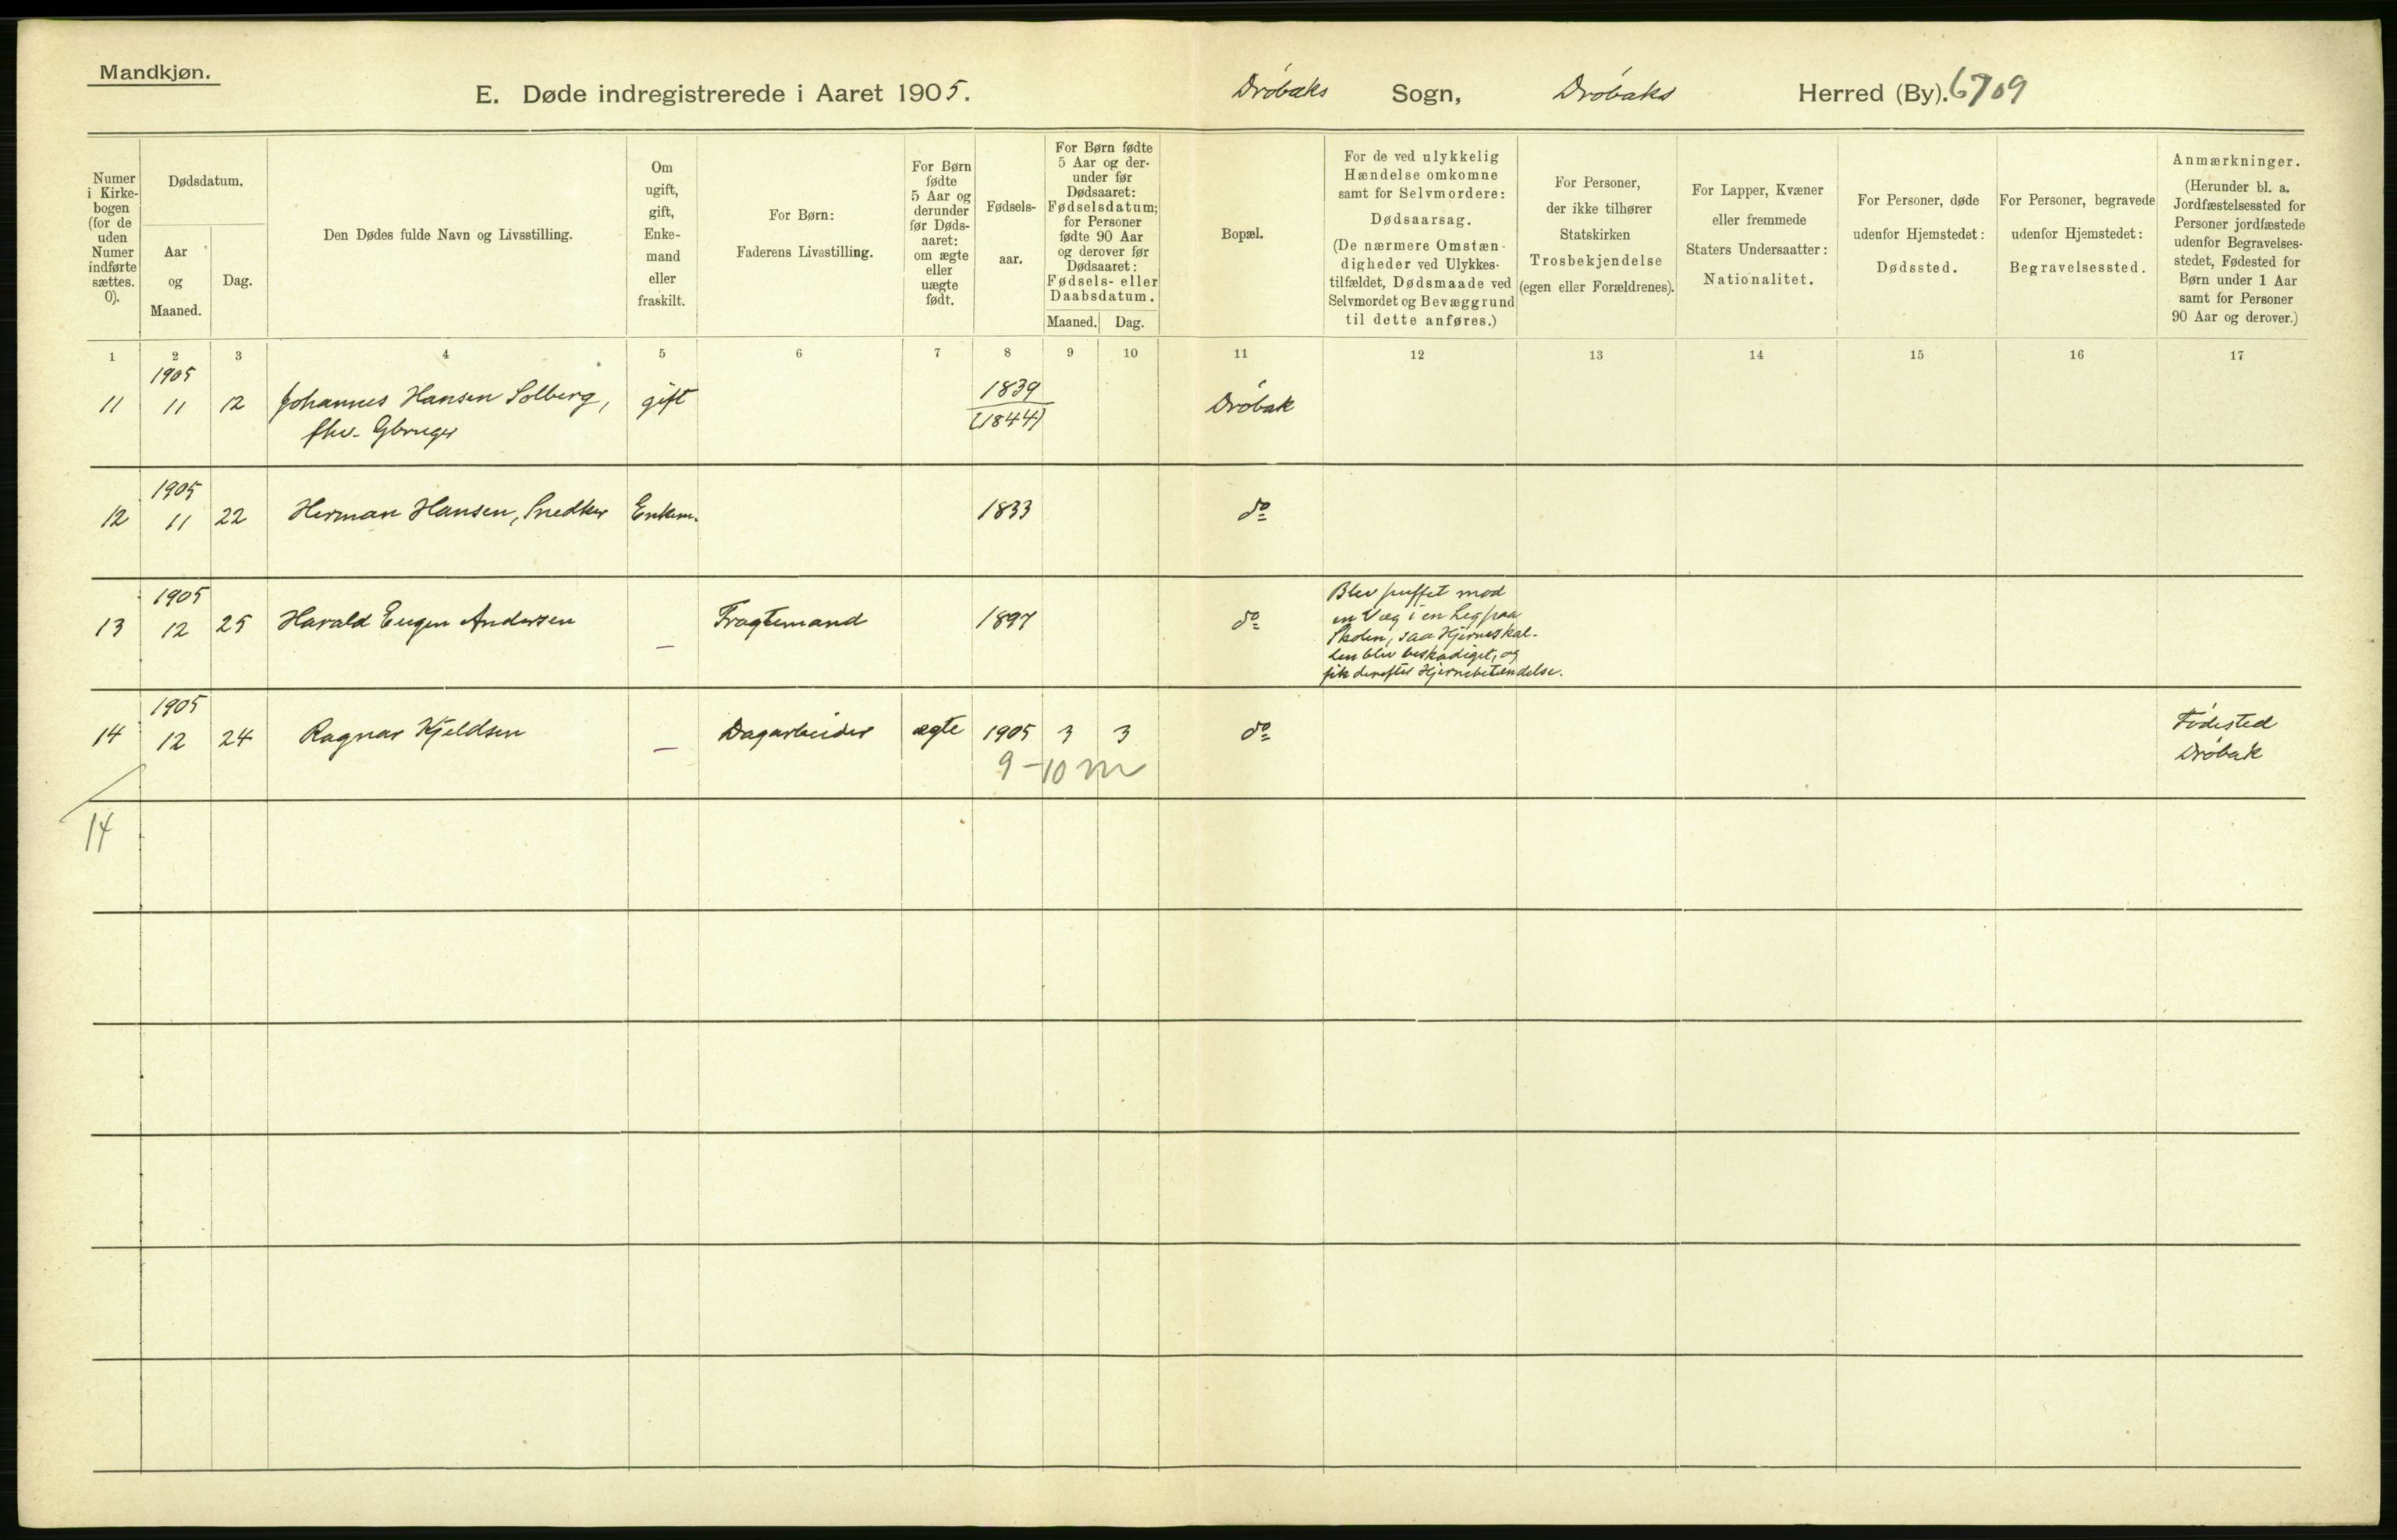 Mandkjøn.
E. Døde indregistrerede i Aaret 1905. Drøbaks Sogn, Drøbaks Herred (By). 6709
Numer
i Kirke-
bogen
(for de
uden
Numer
indførte
sættes.
0).
Dødsdatum.
Aar
og
Maaned.
Dag.
Den Dødes fulde Navn og Livsstilling.
Om
ugift,
gift,
Enke-
mand
eller
fraskilt.
For Børn:
Faderens Livsstilling.
For Børn
fødte
5 Aar og
derunder
før Døds-
aaret:
om ægte
eller
uægte
født.
Fødsels-
aar.
For Børn fødte
5 Aar og der-
under før
Dødsaaret:
Fødselsdatum;
for Personer
fødte 90 Aar
og derover før
Dødsaaret:
Fødsels- eller
Daabsdatum.
Maaned. Dag.
Bopæl.
For de ved ulykkelig
Hændelse omkomne
samt for Selvmordere:
Dødsaarsag.
(De nærmere Omstæn-
digheder ved Ulykkes-
tilfældet, Dødsmaade ved
Selvmordet og Bevæggrund
til dette anføres.)
For Personer,
der ikke tilhører
Statskirken
Trosbekjendelse
(egen eller Forældrenes).
For Lapper, Kvæner
eller fremmede
Staters Undersaatter:
Nationalitet.
For Personer, døde
udenfor Hjemstedet:
Dødssted.
For Personer, begravede
udenfor Hjemstedet:
Begravelsessted.
Anmærkninger.
(Herunder bl. a.
Jordfæstelsessted for
Personer jordfæstede
udenfor Begravelses-
stedet, Fødested for
Børn under 1 Aar
samt for Personer
90 Aar og derover.)
1 2 3 4 5 6 7 8 9 10 11 12 13 14 15 16 17
1905
11 11 12 Johannes Hansen Solberg, gift 1839 Drøbak
fhv. Gbruger (1844)
1905
12 11 22 Herman Hansen, Snedker Enkem. 1833 do
1905
13 12 25 Harald Eugen Andersen — Fragtemand 1897 do
Blev puffet mod
en Væg i en Leg paa
Skolen, saa Hjerneskal-
len blev beskadiget, og
fik derefter Hjernebetændelse.
1905
14 12 24 Ragnar Kjeldsen — Dagarbeider ægte 1905 3 3 do Fødested
Drøbak
9-10 m
14